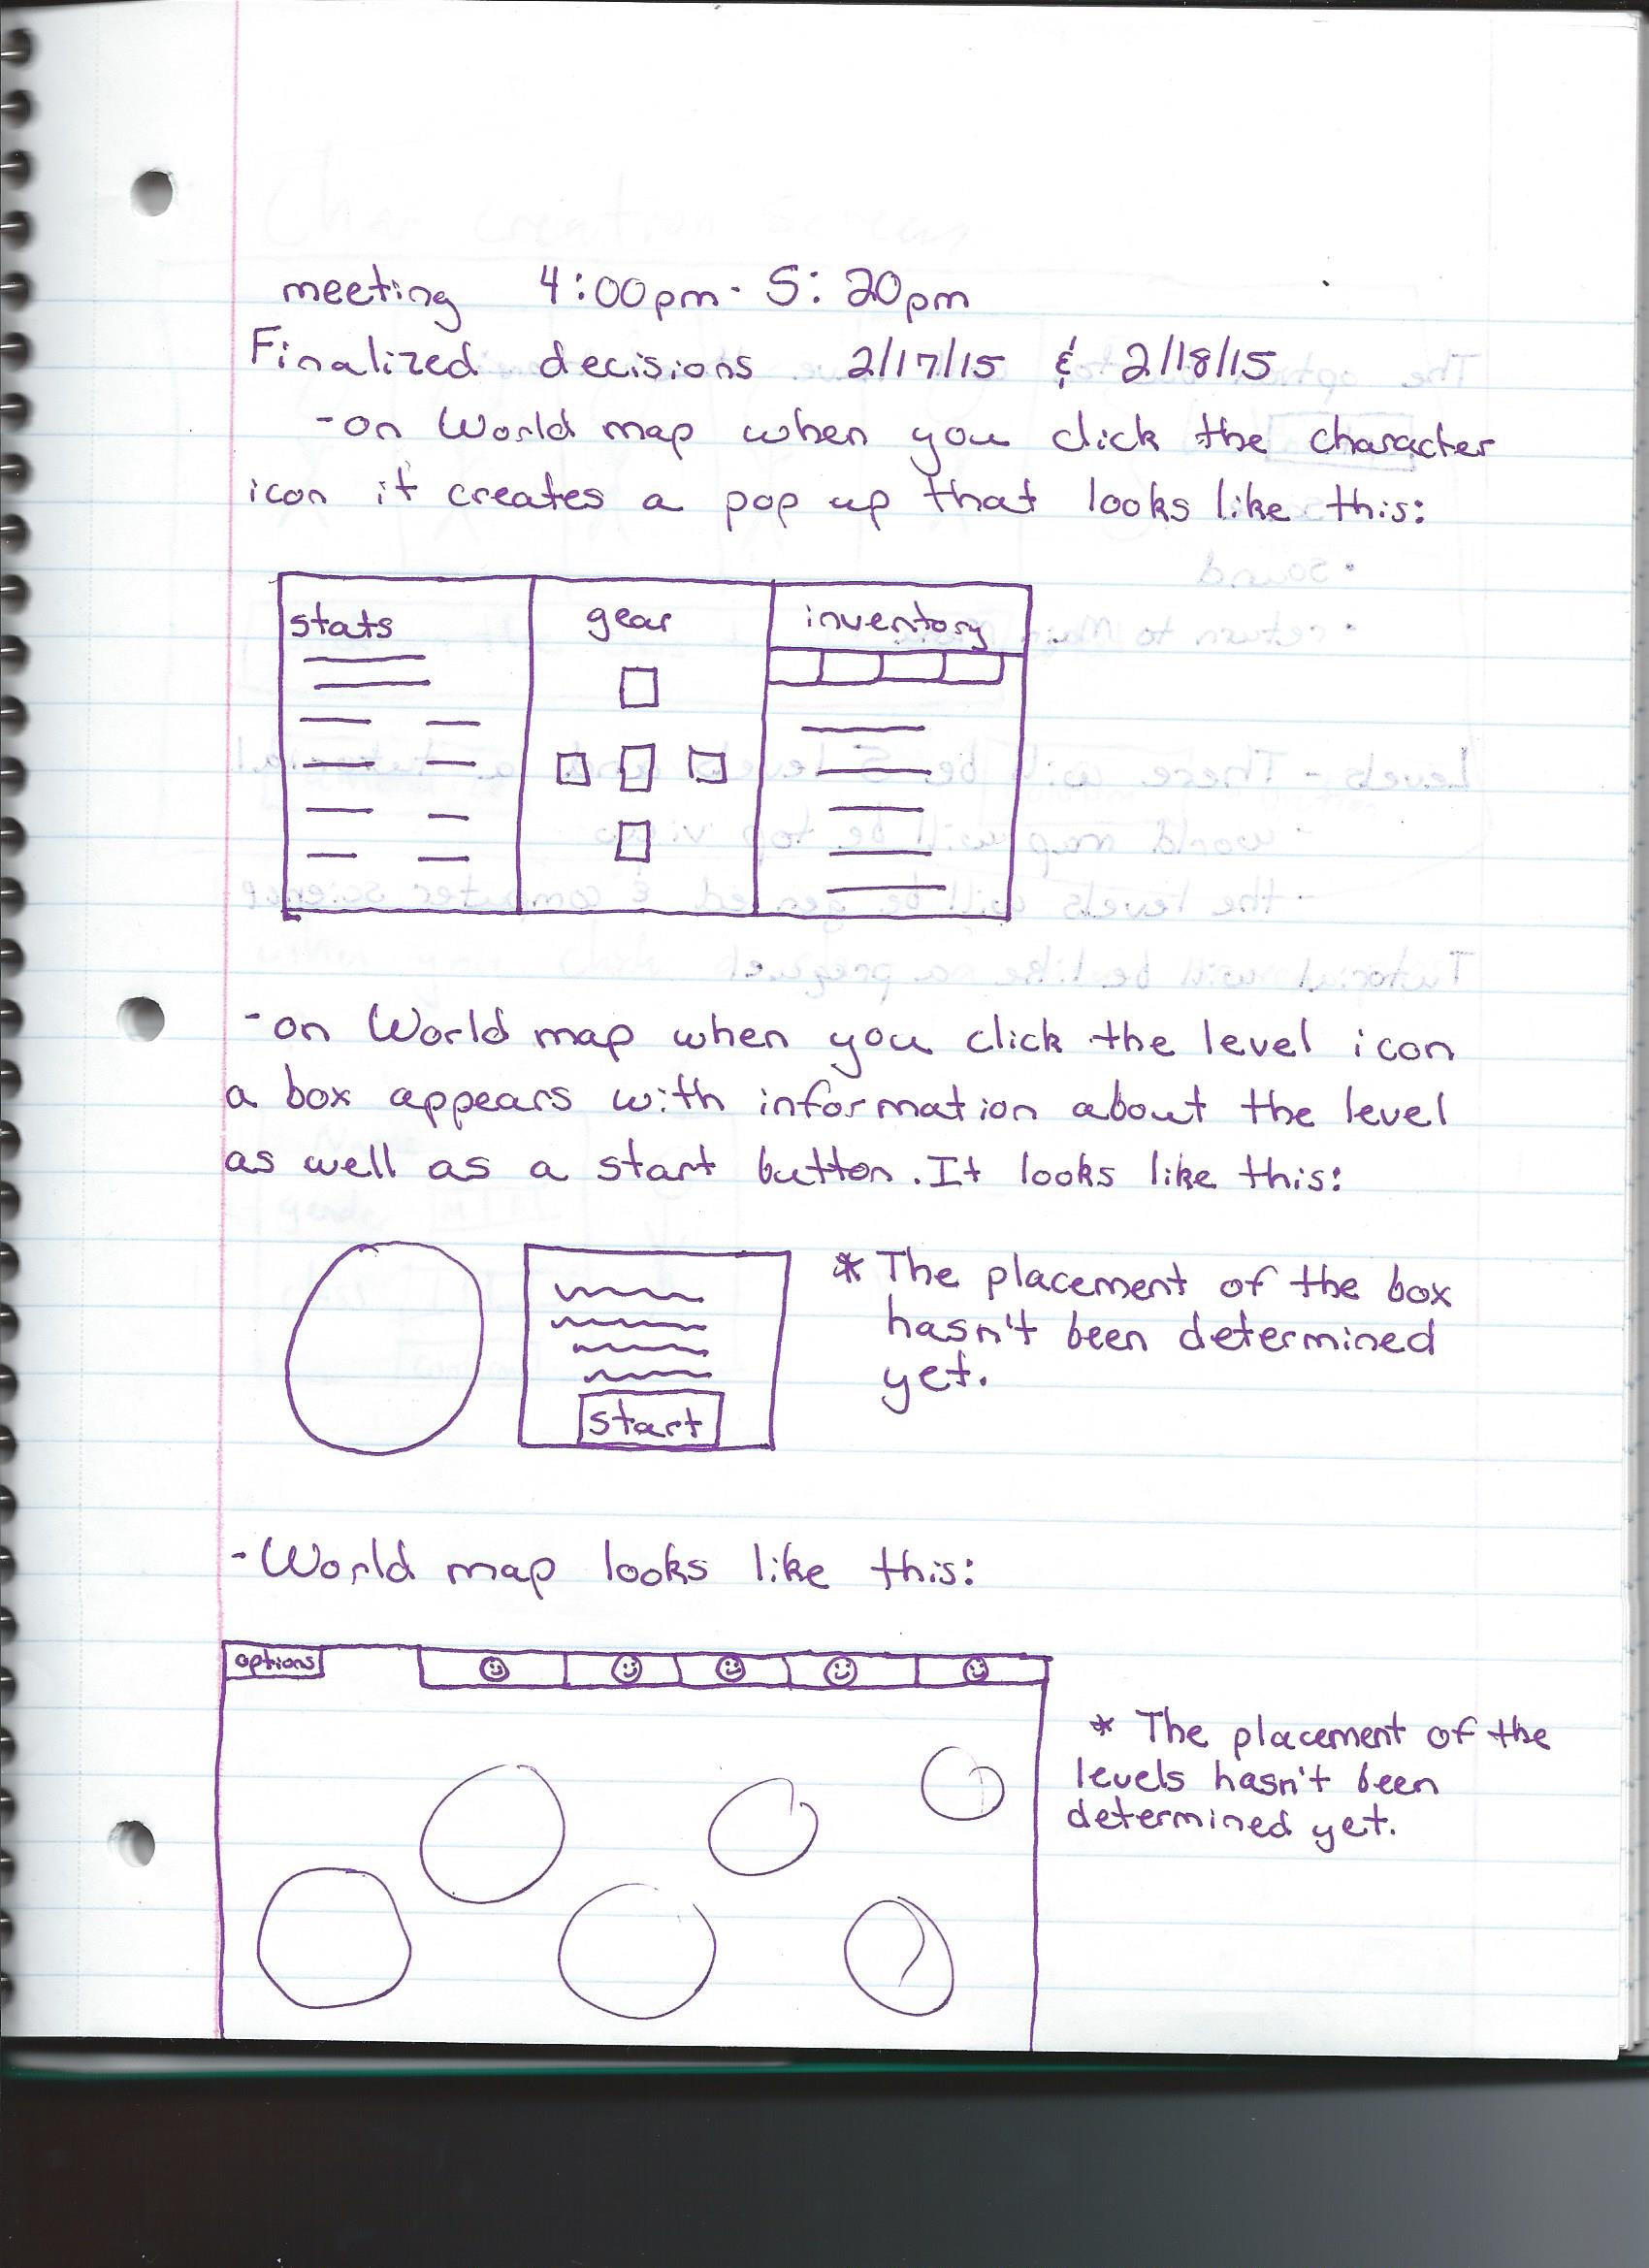 meeting 4:00pm - 5:20pm
Finalized decisions 2/17/15 & 2/18/15
- on World map when you click the character
icon it creates a pop up that looks like this:
stats gear inventory
- on World map when you click the level icon
a box appears with information about the level
as well as a start button. It looks like this:
* The placement of the box
hasn't been determined
yet.
start
- World map looks like this:
options
* The placement of the
levels hasn't been
determined yet.